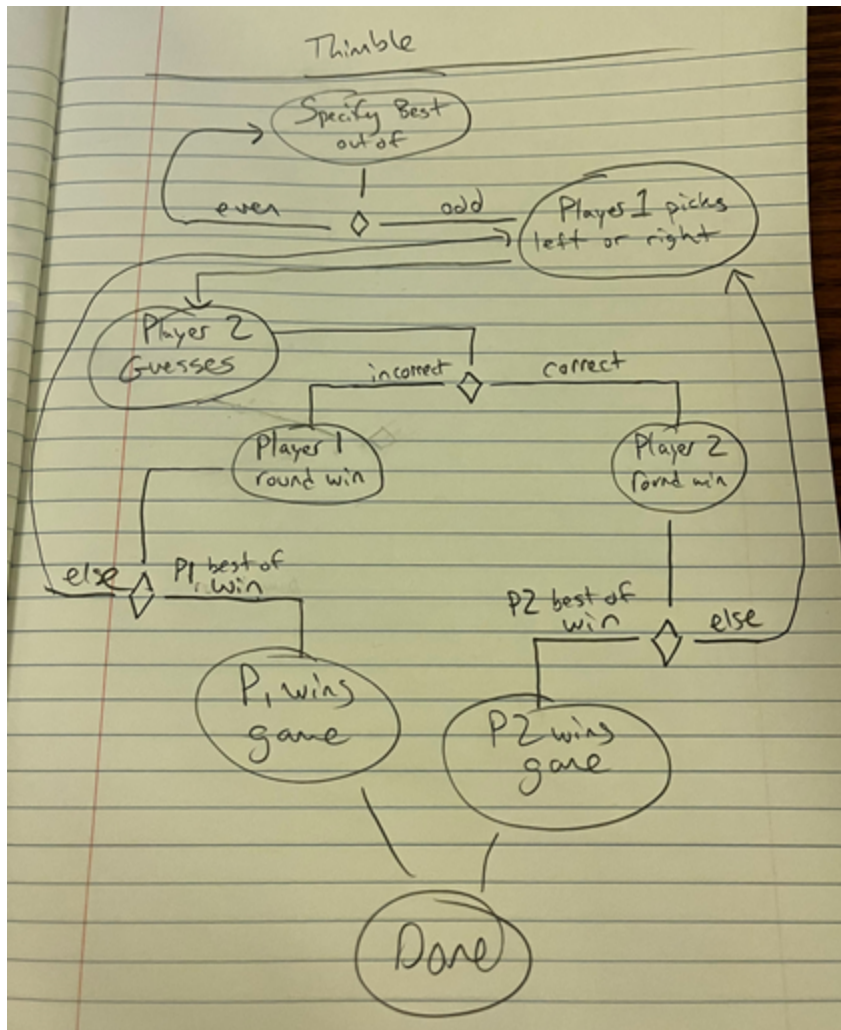 Thimble
Specify Best
out of
even
odd
Player 1 picks
left or right
Player 2
Guesses
incorrect
correct
Player 1
round win
Player 2
round win
else
P1 best of
win
P2 best of
win
else
P1 wins
game
P2 wins
game
Done